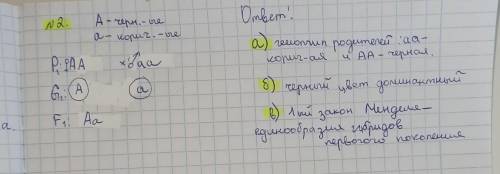 №2. А - черн.-ые
а - корич.-ые
P: ♀АА × ♂аа
G: А а
F₁: Аа
а.
Ответ:
а) генотип родителей: аа-
корич-ая и АА - черная.
б) черный цвет доминантный
в) 1ый закон Менделя -
единообразия гибридов
первого поколения